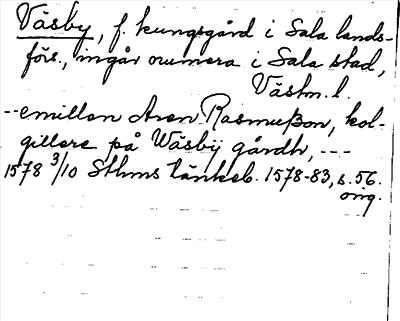 Väsby, f. kungsgård i Sala lands-
förs., ingår numera i Sala stad,
Västm. l.
--emillan Aren Rasmußon, kol-
gillere på Wäsby gårdh, ---
1578 3/10 Sthms tänkeb. 1578-83, s. 56.
orig.